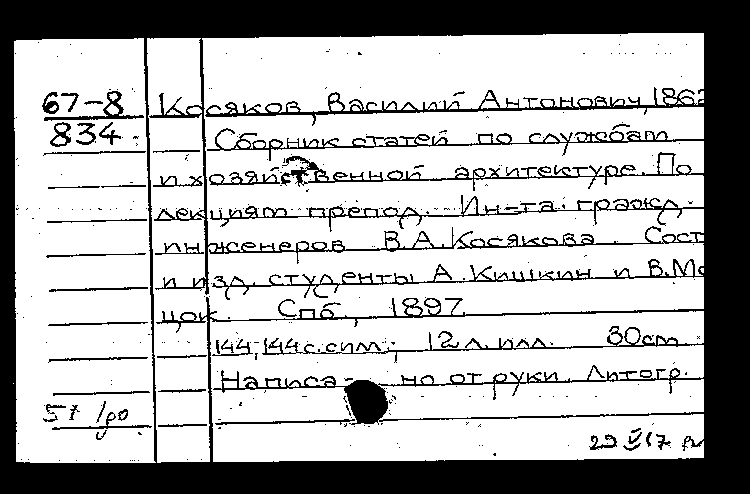 67-8 Косяков, Василий Антонович, 1862
834. Сборник статей по службам
и хозяйственной архитектуре. По
лекциям препод. Ин-та гражд.
инженеров В.А. Косякова. Сост.
и изд. студенты А. Кишкин и В. Мо
цок. Спб., 1897
144, 144 с. слит.; 12 л. илл. 30 см
Написа- но от руки. Литогр.
57
29 V 17